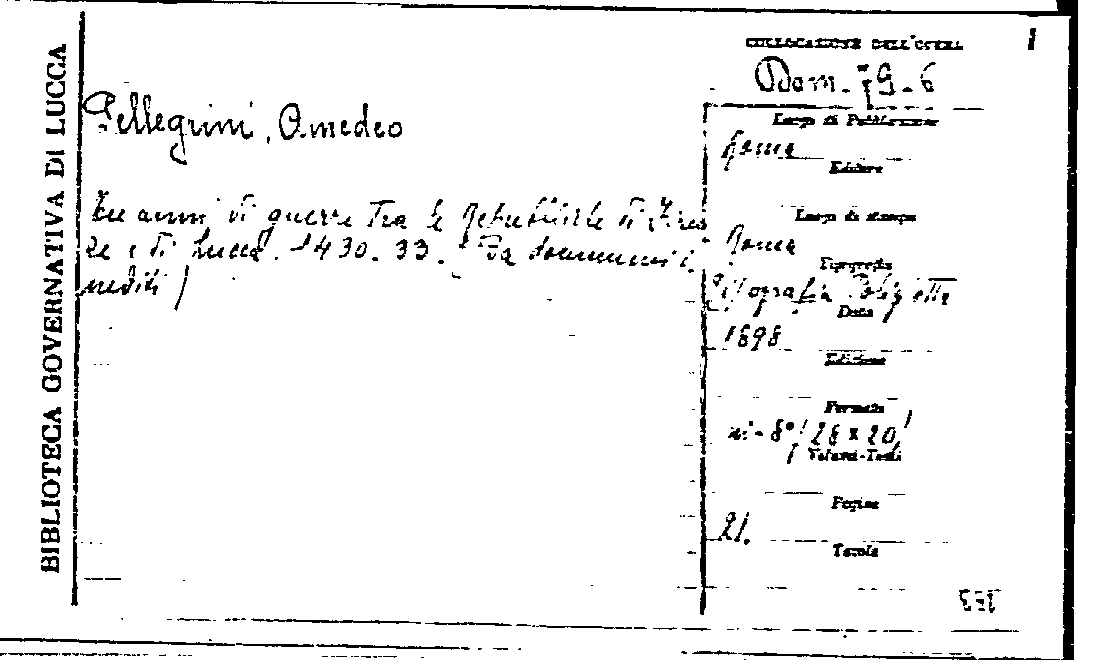 BIBLIOTECA GOVERNATIVA DI LUCCA
COLLOCAZIONE DELL'OPERA
1
Dom. 79-6
Pellegrini, Amedeo
Tre anni di guerre tra le Repubbliche di Firen
ze e di Lucca. 1430-33. Da documenti i
nediti /
Luogo di Pubblicazione
Roma
Editore
Luogo di stampa
Roma
Tipografia
Tipografia Poliglotta
Data
1898
Edizione
Formato
in-8°/28x20/
Volumi-Tomi
Pagine
21.
Tavole